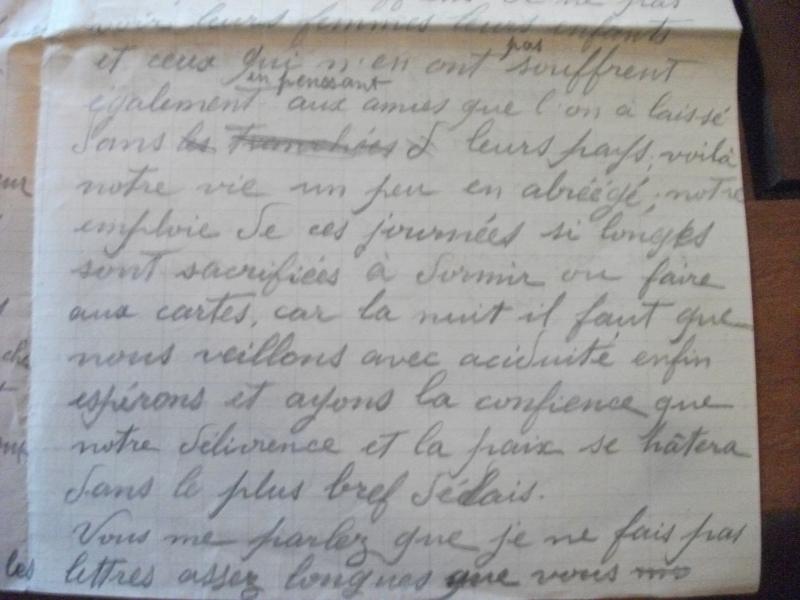 voir leurs femmes leurs enfants
et ceux qui n'en ont pas souffrent
en pensant
également aux amies que l'on a laissé
dans les Tranchées d leurs pays, voilà
notre vie un peu en abréégé; notre
emploie de ces journées si longes
sont sacrifiées à dormir ou faire
aux cartes, car la nuit il faut que
nous veillons avec aciduité enfin
espérons et ayons la confience que
notre délivrence et la paix se hâtera
dans le plus bref délais.
Vous me parlez que je ne fais pas
lettres assez longues que vous